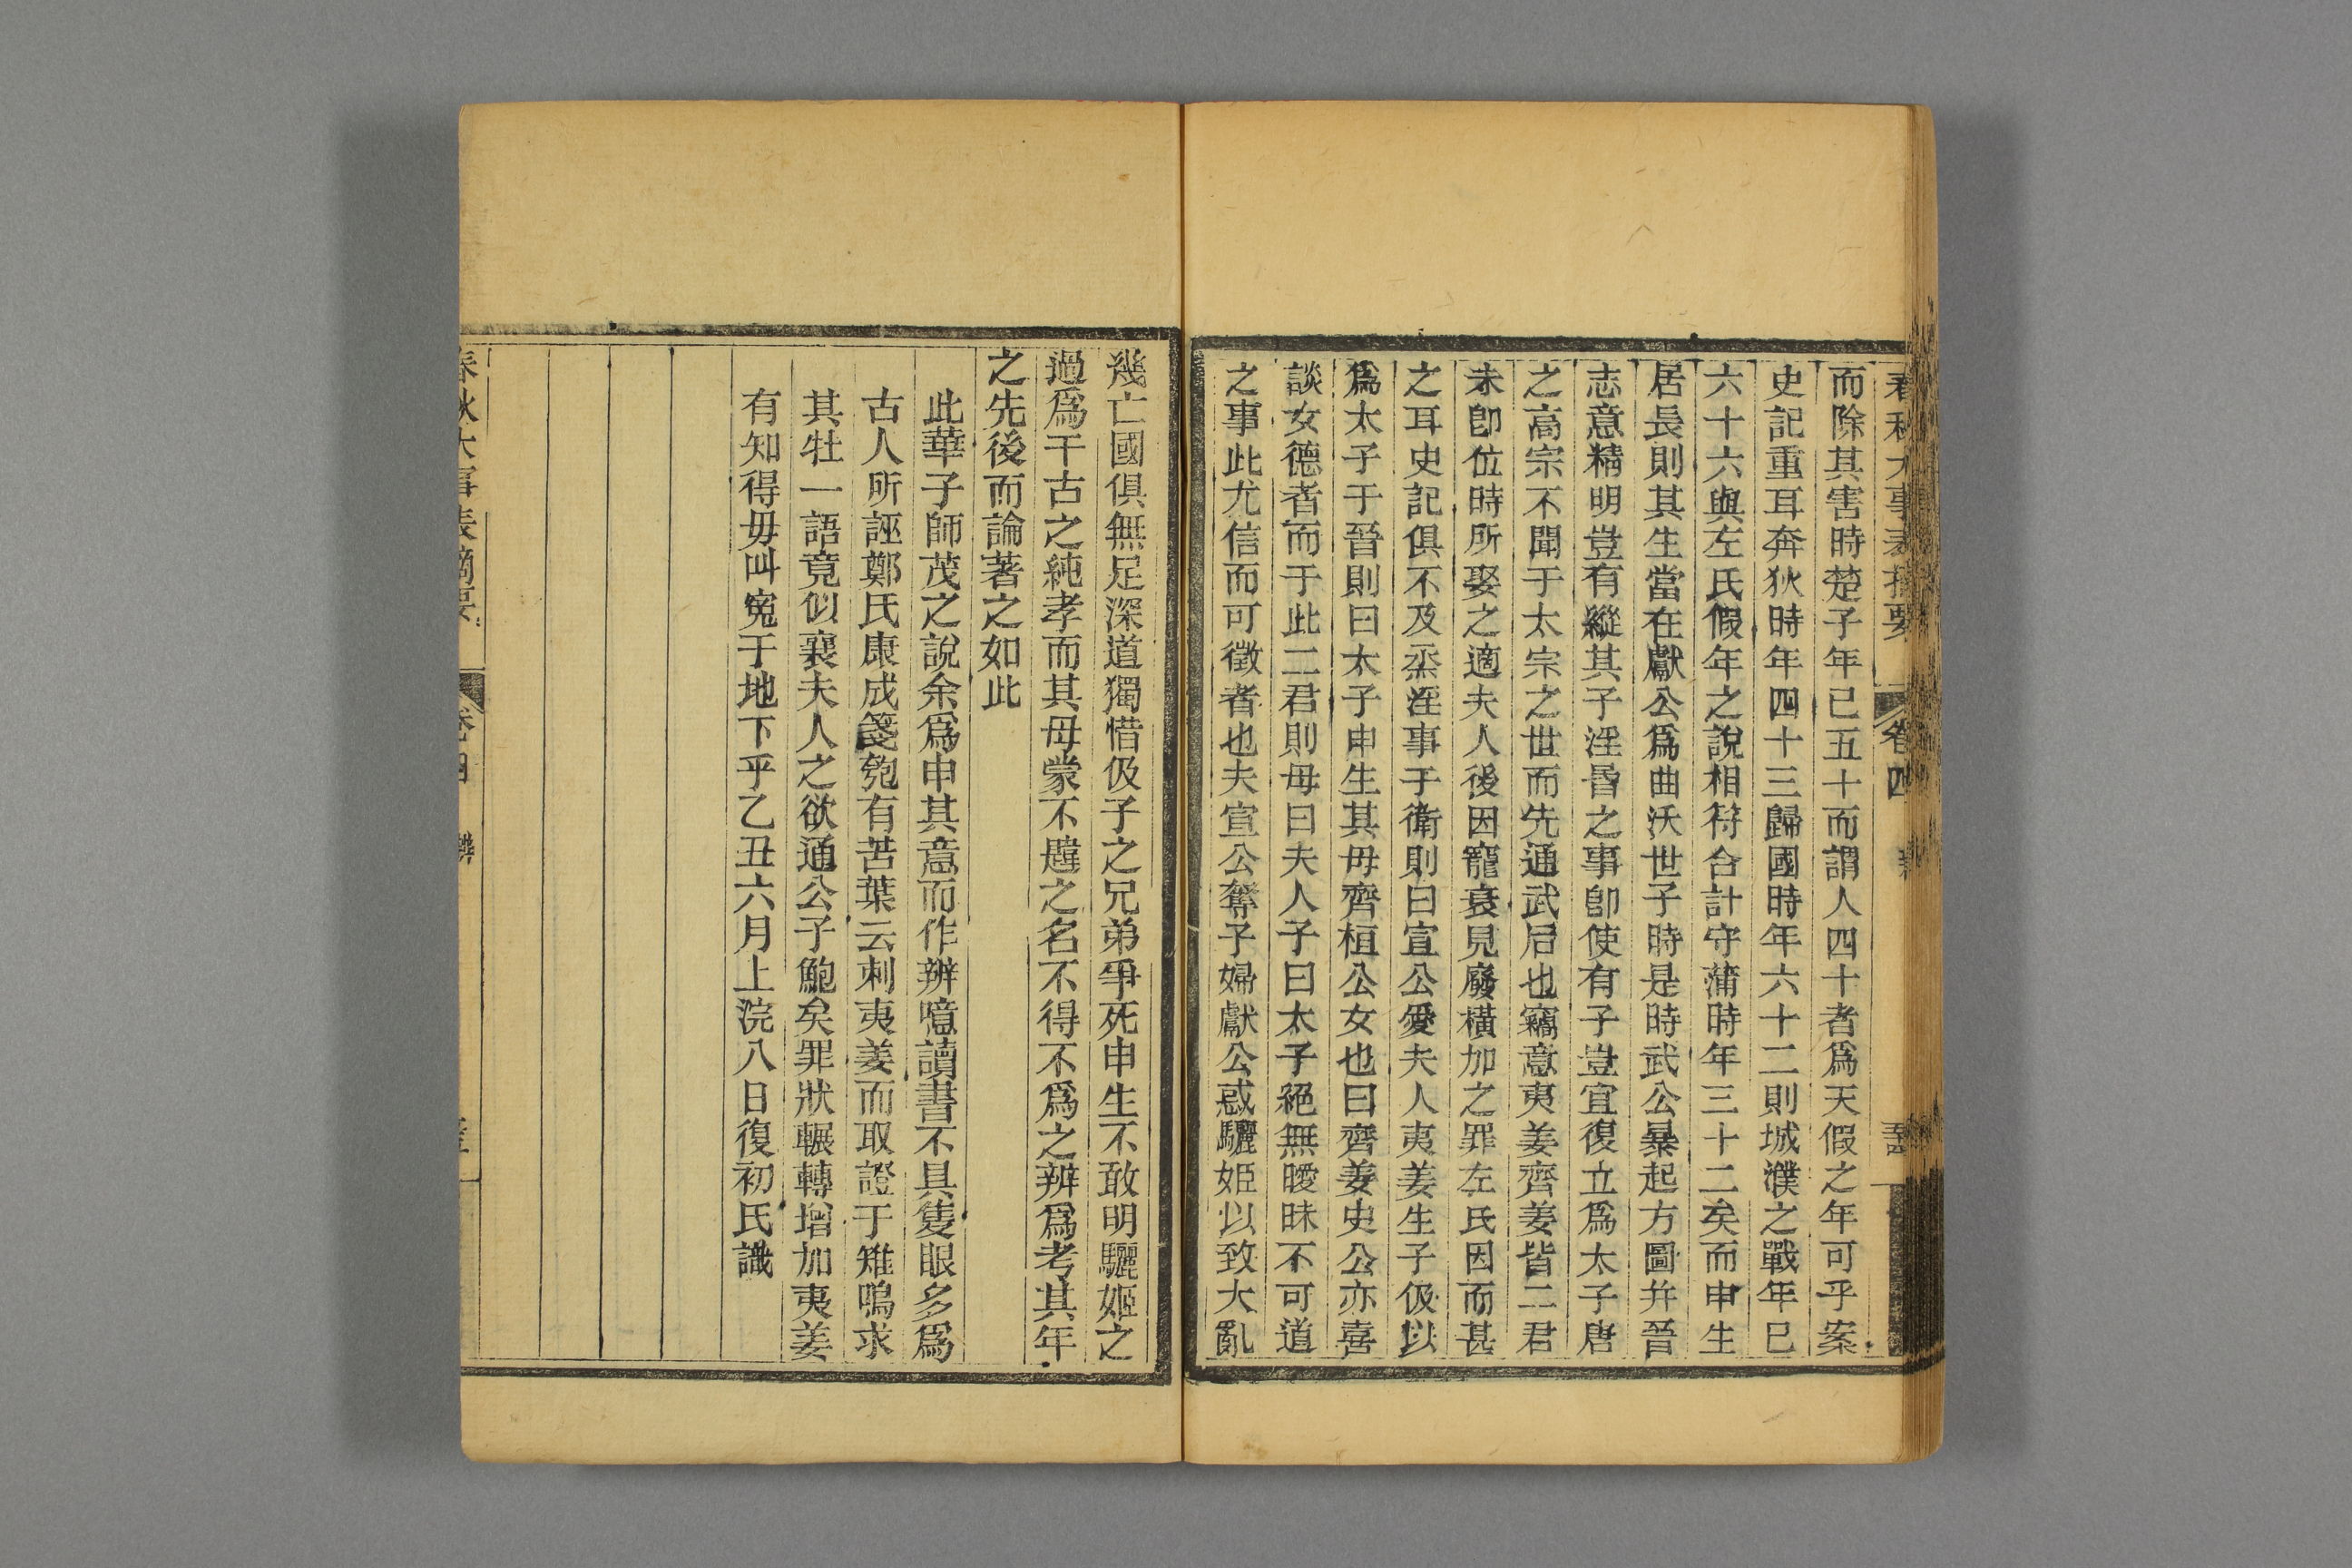 春秋大事表摘要 卷四
而除其害時楚子年已五十而謂人四十者爲天假之年可乎案
史記重耳奔狄時年四十三歸國時年六十二則城濮之戰年已
六十六與左氏假年之說相符合計守蒲時年三十二矣而申生
居長則其生當在獻公爲曲沃世子時是時武公暴起方圖弁晉
志意精明豈有縱其子淫昬之事卽使有子豈宜復立爲太子唐
之高宗不聞于太宗之世而先通武后也竊意夷姜齊姜皆二君
未卽位時所娶之適夫人後因寵衰見廢橫加之罪左氏因而甚
之耳史記俱不及烝淫事于衛則曰宣公愛夫人夷姜生子伋以
爲太子于晉則曰太子申生其母齊桓公女也曰齊姜史公亦喜
談女德者而于此二君則毋曰夫人子曰太子絕無曖昧不可道
之事此尤信而可徵者也夫宣公奪子婦獻公惑驪姬以致大亂
幾亡國俱無足深道獨惜伋子之兄弟爭死申生不敢明驪姬之
過爲千古之純孝而其母蒙不韙之名不得不爲之辨爲考其年
之先後而論著之如此
此華子師茂之說余爲申其意而作辨噫讀書不具隻眼多爲
古人所誣鄭氏康成箋匏有苦葉云刺夷姜而取證于雉鳴求
其牡一語竟似襄夫人之欲通公子鮑矣罪狀輾轉增加夷姜
有知得毋叫寃于地下乎乙丑六月上浣八日復初氏識
春秋大事表摘要 卷四 辨